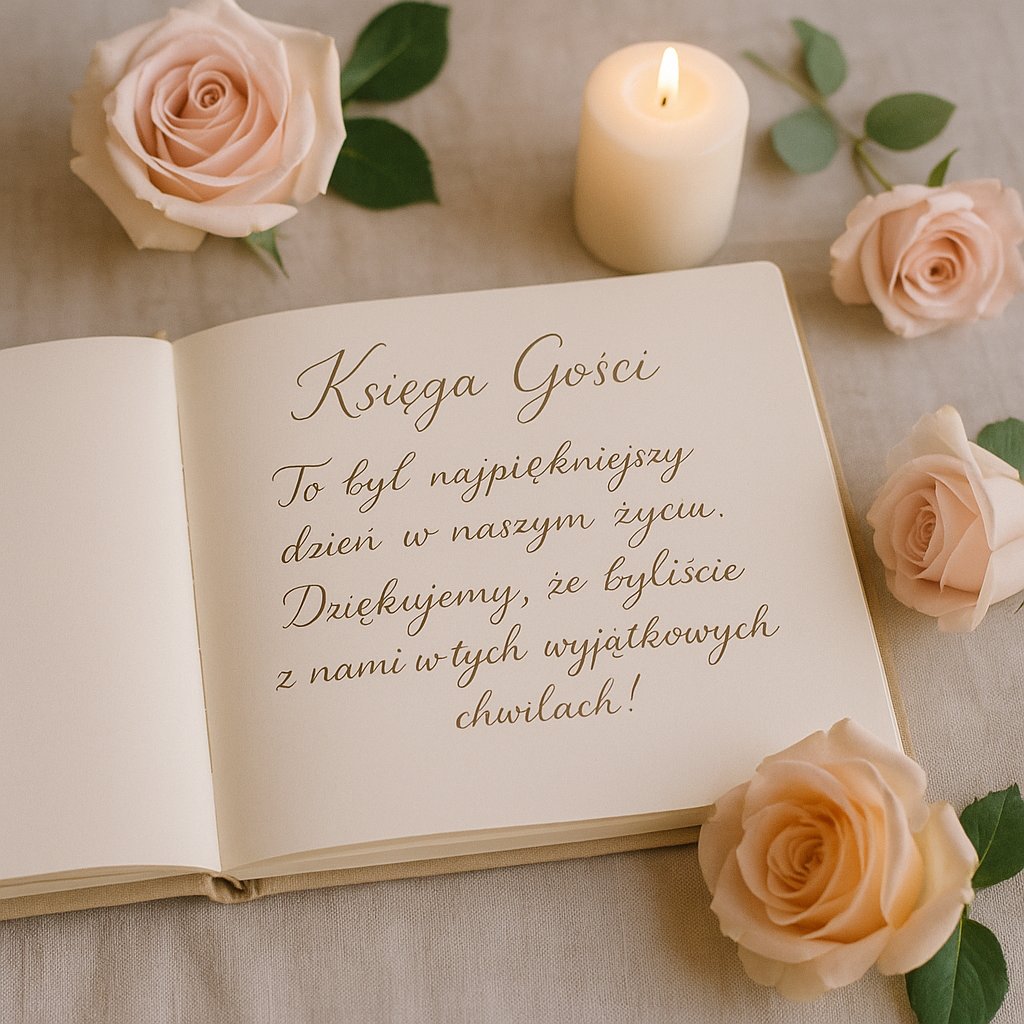 Księga Gości
To był najpiękniejszy
dzień w naszym życiu.
Dziękujemy, że byliście
z nami w tych wyjątkowych
chwilach!